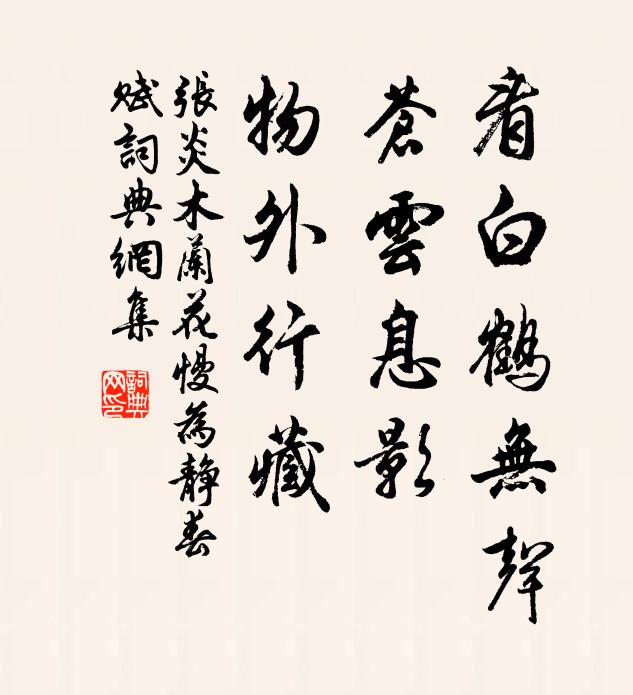 看白鶴無聲
蒼雲息影
物外行藏
張炎木蘭花慢為静春
賦詞典網集
詞典
网印